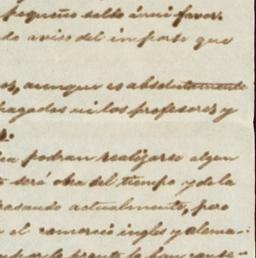 pequeño saldo á mi favor.
do aviso del importe que
os, aunque es absolutamente
pagados ni los profesores y
podran realizarse algun
será obra del tiempo y de la
pasando actualmente, pero
el comercio ingles y alema-